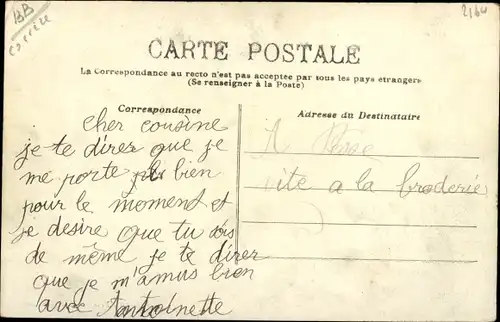 BB
Corrèze
CARTE POSTALE
La Correspondance au recto n'est pas acceptée par tous les pays étrangers
(Se renseigner à la Poste)
Correspondance
Adresse du Destinataire
cher cousine
je te direr que je
me porte bien
pour le moment et
je desire que tu sois
de même je te direr
que je m'amus bien
avec Antoinette
A
ite a la broderie